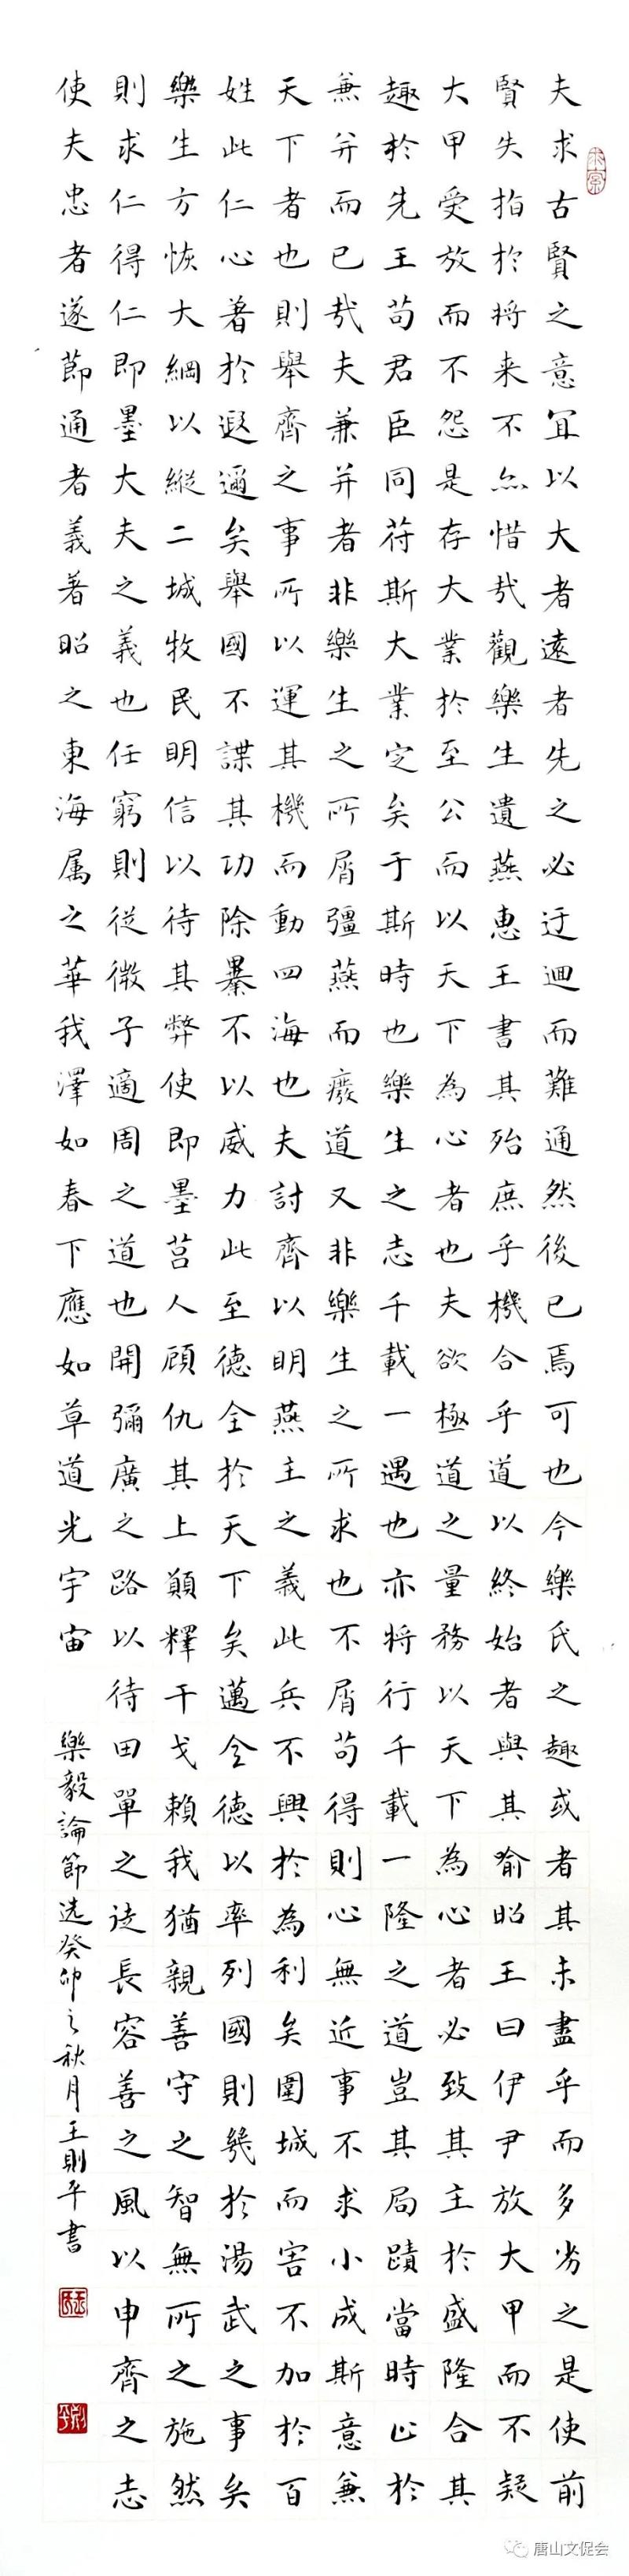 夫求古賢之意冝以大者遠者先之必迂迴而難通然後已焉可也今樂氏之趣或者其未盡乎而多劣之是使前
賢失指於将来不亦惜哉觀樂生遺燕惠王書其殆庶乎機合乎道以終始者與其喻昭王曰伊尹放大甲而不疑
大甲受放而不怨是存大業於至公而以天下為心者也夫欲極道之量務以天下為心者必致其主於盛隆合其
趣於先王苟君臣同苻斯大業定矣于斯時也樂生之志千載一遇也亦将行千載一隆之道豈其局蹟當時止於
兼并而已哉夫兼并者非樂生之所屑彊燕而廢道又非樂生之所求也不屑苟得則心無近事不求小成斯意兼
天下者也則舉齊之事所以運其機而動四海也夫討齊以明燕主之義此兵不興於為利矣圍城而害不加於百
姓此仁心著於遐邇矣舉國不謀其功除暴不以威力此至德全於天下矣邁全德以率列國則幾於湯武之事矣
樂生方恢大綱以縱二城牧民明信以待其弊使即墨莒人顧仇其上願釋干戈賴我猶親善守之智無所之施然
則求仁得仁即墨大夫之義也任窮則從微子適周之道也開彌廣之路以待田單之徒長容善之風以申齊之志
使夫忠者遂節通者義著昭之東海属之華我澤如春下應如草道光宇宙
樂毅論節选癸卯之秋月王則平書
唐山文促会